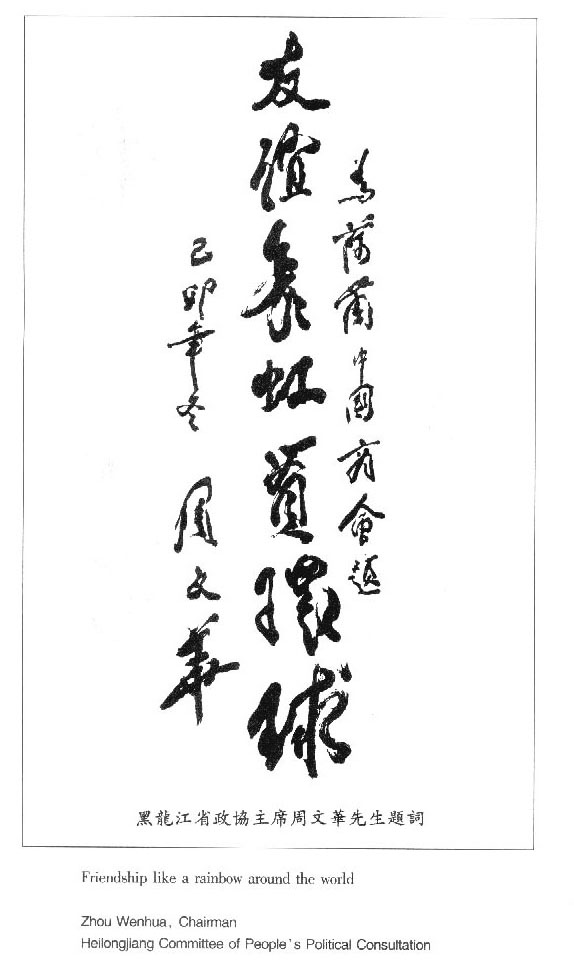 為荷蘭中國商會題
友誼長虹貫環球
己卯年冬 周文華
黑龍江省政協主席周文華先生題詞
Friendship like a rainbow around the world
Zhou Wenhua, Chairman
Heilongjiang Committee of People's Political Consultation